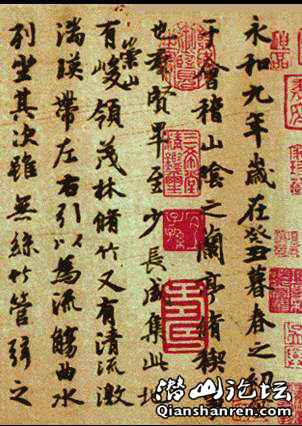 永和九年歲在癸丑暮春之初
于會稽山陰之蘭亭脩禊
也羣賢畢至少長咸集此地
有崇山峻領茂林脩竹又有清流激
湍暎帶左右引以為流觴曲水
列坐其次雖無絲竹管弦之
潜山论坛
Qianshanren.com